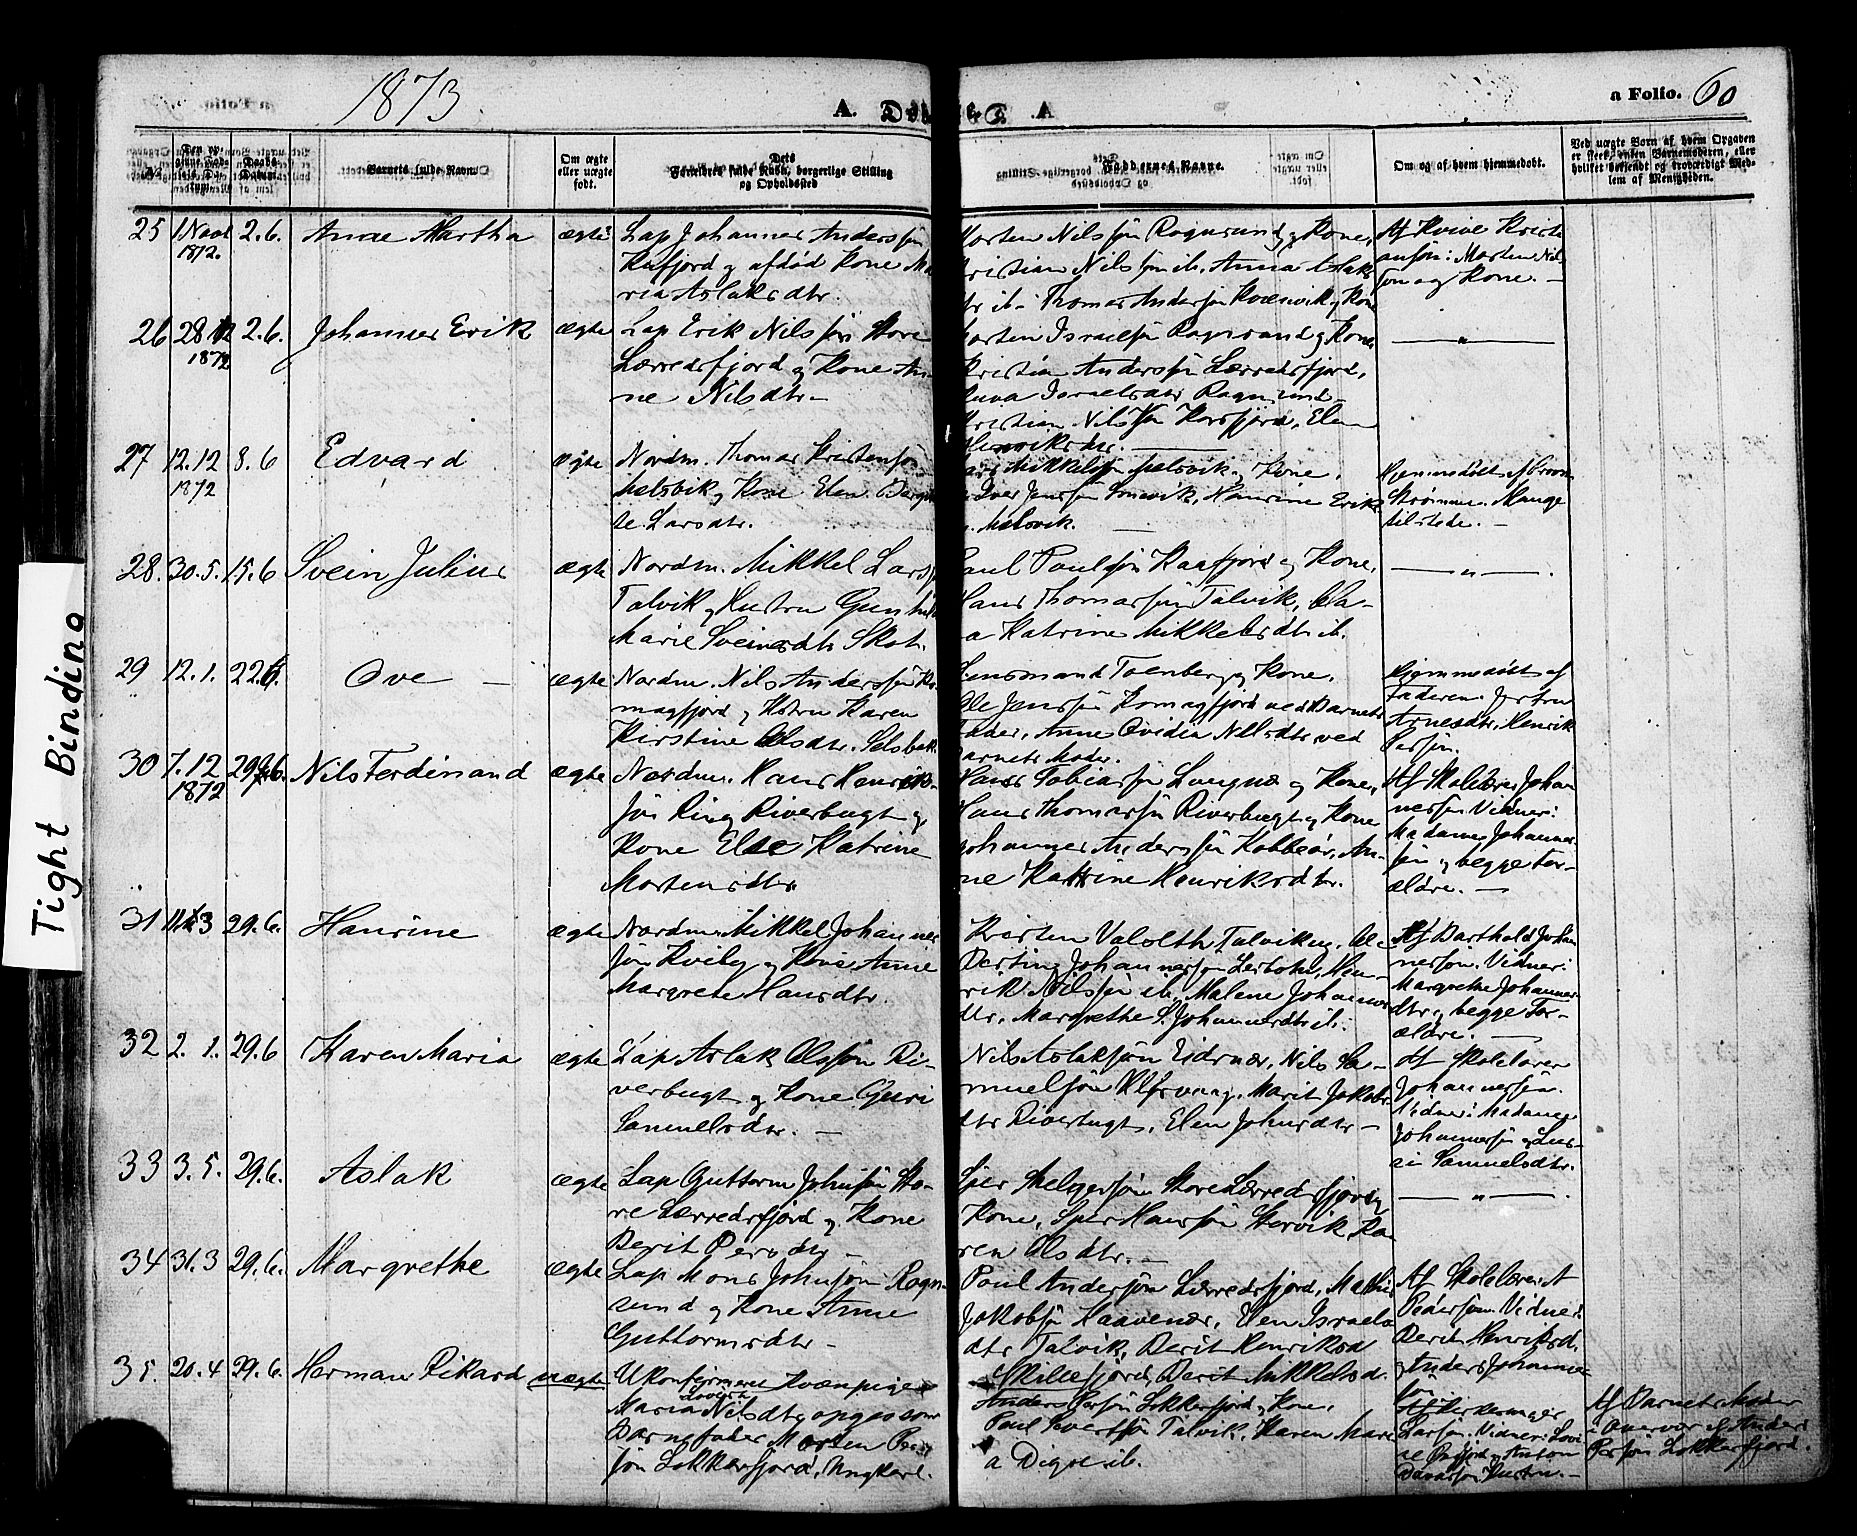 1873
A.
A
a Folio. 60
Barnets fulde Navn.
Om ægte
eller uægte
født.
Dets
Forældres fulde Navn, borgerlige Stilling
og Opholdssted
Faddernes Navne.
Om og af hvem hjemmedøbt.
Ved uægte Børn af hvem Opgaven
er skeet, enten Barnemoderen, eller
hvilket bekjendt og troværdigt Med-
lem af Menigheden.
25 1 Novbr 1872. 2.6. Anne Martha ægte
Lap Johannes Anderssøn
Rafjord og afdød Kone Ma-
ria Aslaksdtr.
Morten Nilssøn Rognsund og Kone,
Kristian Nilssøn ib. Anna Aslaks
dtr ib. Thomas Anderssøn Kvænvik og Kone
Af Kvive Kristi
ansøn: Morten Nils
søn og Kone. –
26 28 12 1872 2.6. Johannes Erik ægte
Lap Erik Nilssøn Store
Lærredsfjord og Kone An-
ne Nilsdtr –
Morten Israelsøn Rognsund og Kone
Kristian Anderssøn Lærredsfjord,
Israelsdtr Rognsund –
Kristian Nilssøn Korsfjord, Elen
Henriksdtr.
— " —
27 12.12 1872 8.6 Edvard ægte
Nordm. Thomas Kristensøn
Melsvik og Kone Elen Bergit
te Larsdtr.
Mikkelsøn Melsvik og Kone,
Iver Jenssøn, Hansine Eriks
Melsvik. —
Hjemmedøbt af
Strømme. Mange
tilstede. –
28. 30.5. 15.6 Svein Julius ægte
Nordm. Mikkel Lars
Talvik og Hustru Gunhild
Marie Sveinsdtr Skot.
Paul Paulsøn Kaafjord og Kone,
Hans Thomassøn Talvik,
Katrine Mikkelsdtr ib.
— " — .
29 12.1. 22.6. Ove – ægte
Nordm. Nils Anderssøn Ko-
magfjord og Hustru Karen
Kirstine Olsdtr.
Lensmand Toenberg og Kone.
Ole Jenssøn Komagfjord ved Barnets
Fader, Anne Ovidia Nilsdtr ved
Barnets Moder.
Hjemmedøbt af
Faderen. Jertru
Arnesdtr, Henrik
Persøn.
30 7.12 1872 29.6. Nils Ferdinand ægte
Nordm. Hans Henrik-
søn Ring Riverbugt og
Kone Else Katrine
Mortensdtr.
Hans Tobiassøn Langnæs og Kone,
Hans Thomassøn Riverbugt og Kone
Johannes Anderssøn Kobbeør, An-
ne Katrine Henriksdtr.
Af Skolelærer Johan
nessen Vidner:
Madame Johannes-
søn og begge For-
ældre. —
31 11.3 29.6. Hansine ægte
Nordm. Mikkel Johannes
søn Kviby og Kone Anne
Margrete Hansdtr.
Kristen Talvik og
Johannessøn Lerbotn, Hen-
rik Nilssøn ib. Malene Johannes
dtr, Margrethe S. Johannesdtr ib.
Af Barthold Johan
nessøn. Vidner:
Margrethe Johannes
dtr og begge For-
ældre. —
32 2.1. 29.6 Karen Maria ægte
Lap Aslak Olssøn Ri-
verbugt og Kone Guri
Samuelsdtr. –
Nils Aslaksøn Eidsnæs, Nils Sa-
muelsøn Ulfsvaag, Marit Jakobs
dtr Riverbugt, Elen Johnsdtr –
Af Skolelærer
Johannessøn.
Vidner: Madame
Johannessøn og
Samuelsdtr.
33 3.5. 29.6. Aslak ægte
Lap Guttorm Johnsøn Sto-
re Lærredsfjord og Kone
Berit Persdtr –
Helgersøn Store Lærredsfjord og
Kone, Hanssøn Storvik, Ka-
ren Olsdtr. –
— " — .
34 31.3 29.6. Margrethe ægte
Lap Mons Johnsøn Rogn-
sund og Kone Anne
Guttormsdtr –
Paul Anderssøn Lærredsfjord, Mathis
Jakobsøn Kaavenæs, Elen Israels
dtr Talvik, Berit Henriksd
Skillefjord, Berit Mikkelsd.
Af Skolelærer A
Pedersøn. Vidner:
Berit Henriksd.
og Anders Johannes
søn
35. 20.4 29.6. Herman Rikard uægte
Ukonfirmeret Kvænpige
Maria Lovisa Nilsdtr, opgav som
Barnefader Morten Per
søn Lokkerfjord, Ungkarl.
Anders Persøn Lokkerfjord og Kone,
Paul Ivertsøn Talvik, Karen Mari
a Digre ib.
Af Kirkesanger
Larsen. Vidner: Lovi
se og Anton
Hustru. –
Af Barnets Moder
i Overvær af Anders
Persøn Lokkerfjord.
Tight Binding